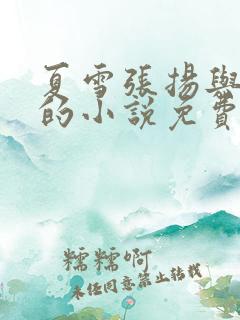 夏雪張揚與
的小說免費
糯糯啊
未经同意禁止转载